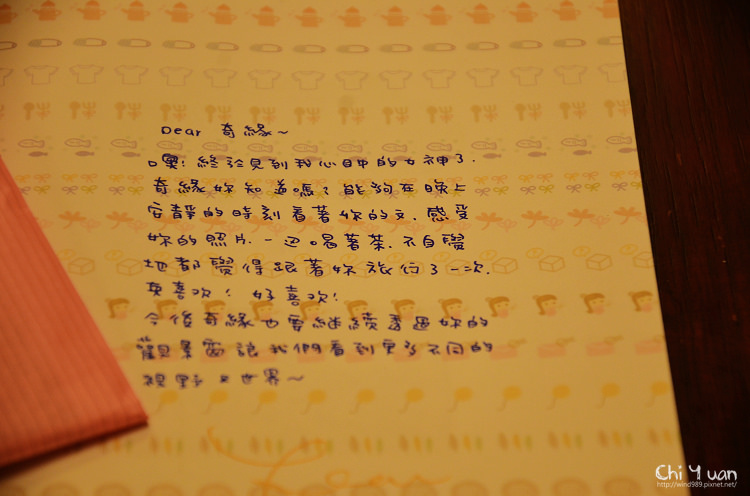 Dear 奇緣~
噢! 終於見到我心目中的女神了.
奇緣妳知道嗎? 能夠在晚上
安靜的時刻看著妳的文. 感受
妳的照片. 一邊喝著茶. 不自覺
地都覺得跟著妳旅行了一次.
真喜歡! 好喜歡!
今後奇緣也要繼續透過妳的
觀景窗讓我們看到更多不同的
視野與世界~
Chi Yuan
http://wind989.pixnet.net/